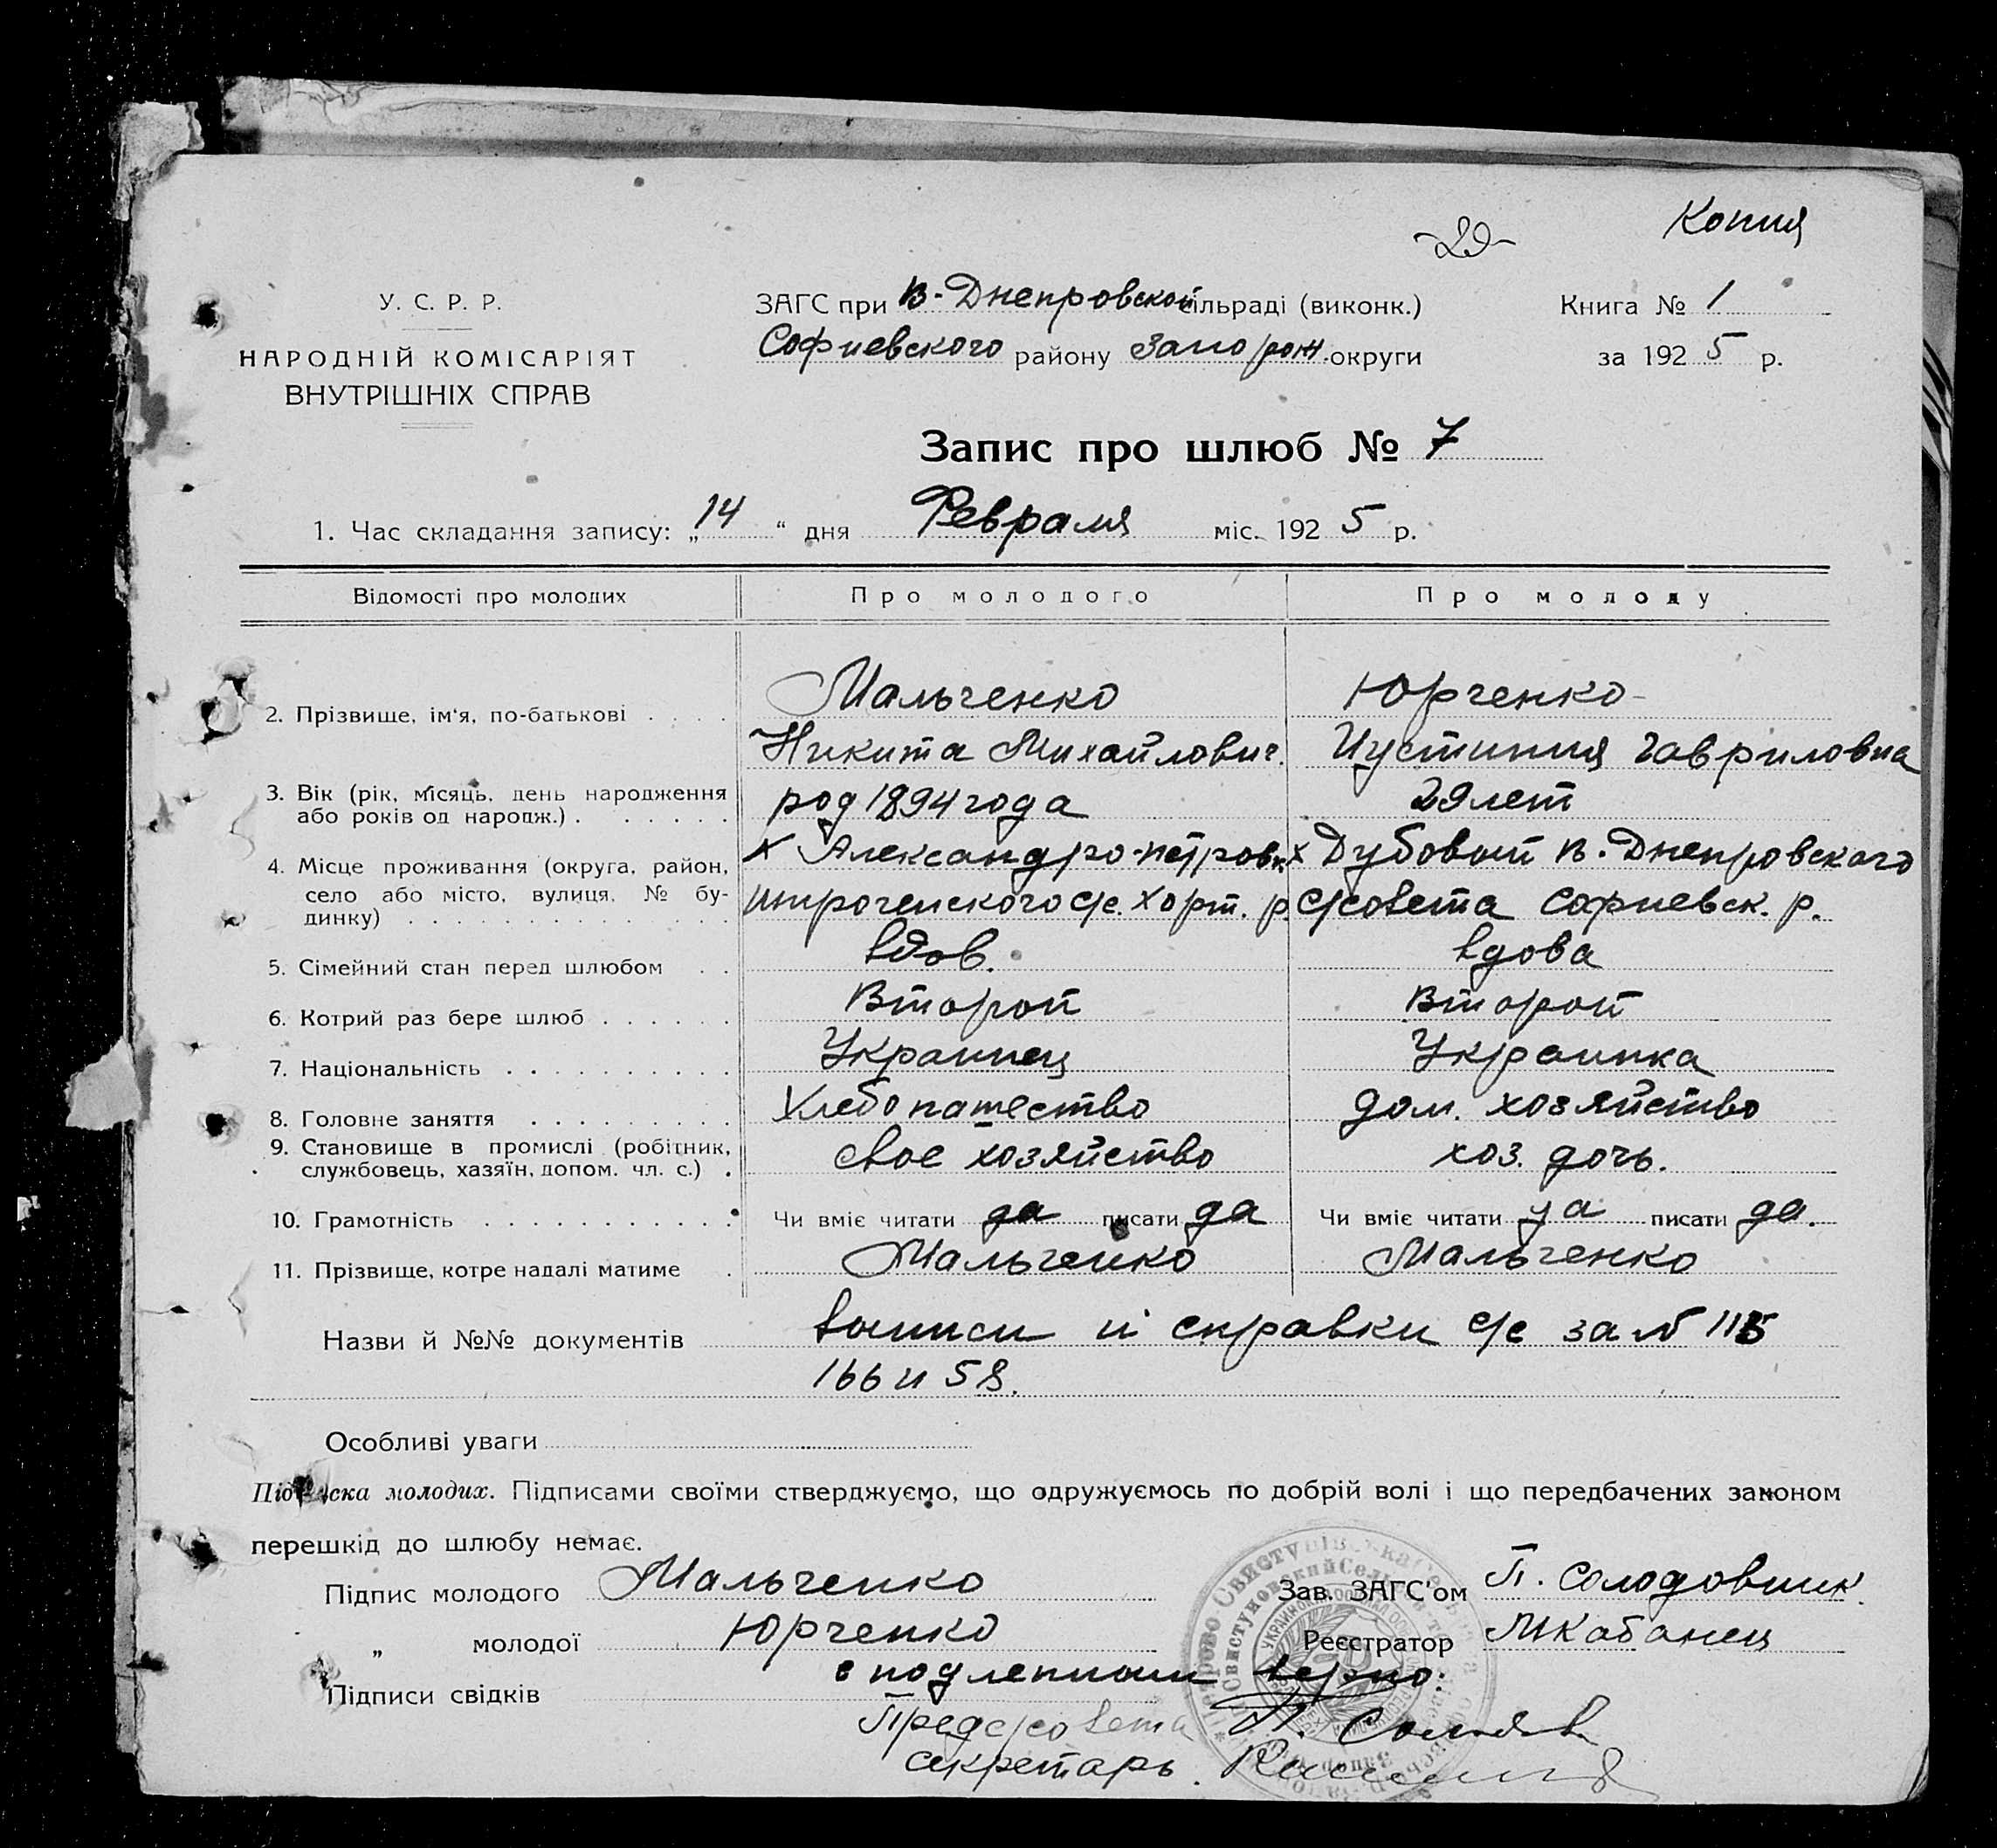 Копия
-29-
У. С. Р. Р.
НАРОДНІЙ КОМІСАРІЯТ
ВНУТРІШНІХ СПРАВ
ЗАГС при В-Днепровской сільраді (виконк.)
Софиевского району Запорож. округи
Книга № 1
за 1925 р.
Запис про шлюб № 7
1. Час складання запису: „14“ дня Февраля міс. 1925 р.
Відомості про молодих Про молодого Про молоду
2. Прізвище, ім‘я, по-батькові Мальченко Юрченко
Никита Михайлович. Иустиния Гавриловна
3. Вік (рік, місяць, день народження або років од народж.) род 1894 года 29 лет
4. Місце проживання (округа, район, х Александро-петровк. х Дубовый В. Днепровского
село або місто, вулиця, № будинку) широченского с/с. Хорт. р. с/совета Софиевск. р.
5. Сімейний стан перед шлюбом вдов. вдова
6. Котрий раз бере шлюб Второй Второй
7. Національність Украинец Украинка
8. Головне заняття Хлебопашество дом. хозяйство
9. Становище в промислі (робітник, службовець, хазяїн, допом. чл. с.) свое хозяйство хоз. дочь.
10. Грамотність Чи вміє читати да писати да Чи вміє читати да писати да.
11. Прізвище, котре надалі матиме Мальченко Мальченко
Назви й №№ документів выписи и справки с/с за № 115
166 и 58.
Особливі уваги
Підписка молодих. Підписами своїми стверджуємо, що одружуємось по добрій волі і що передбачених законом
перешкід до шлюбу немає.
Підпис молодого Мальченко Зав. ЗАГС'ом П. Солодовник
„ молодої Юрченко Реєстратор МКабанец
с подленным верно:
Підписи свідків
Предс/совета П.
секретарь